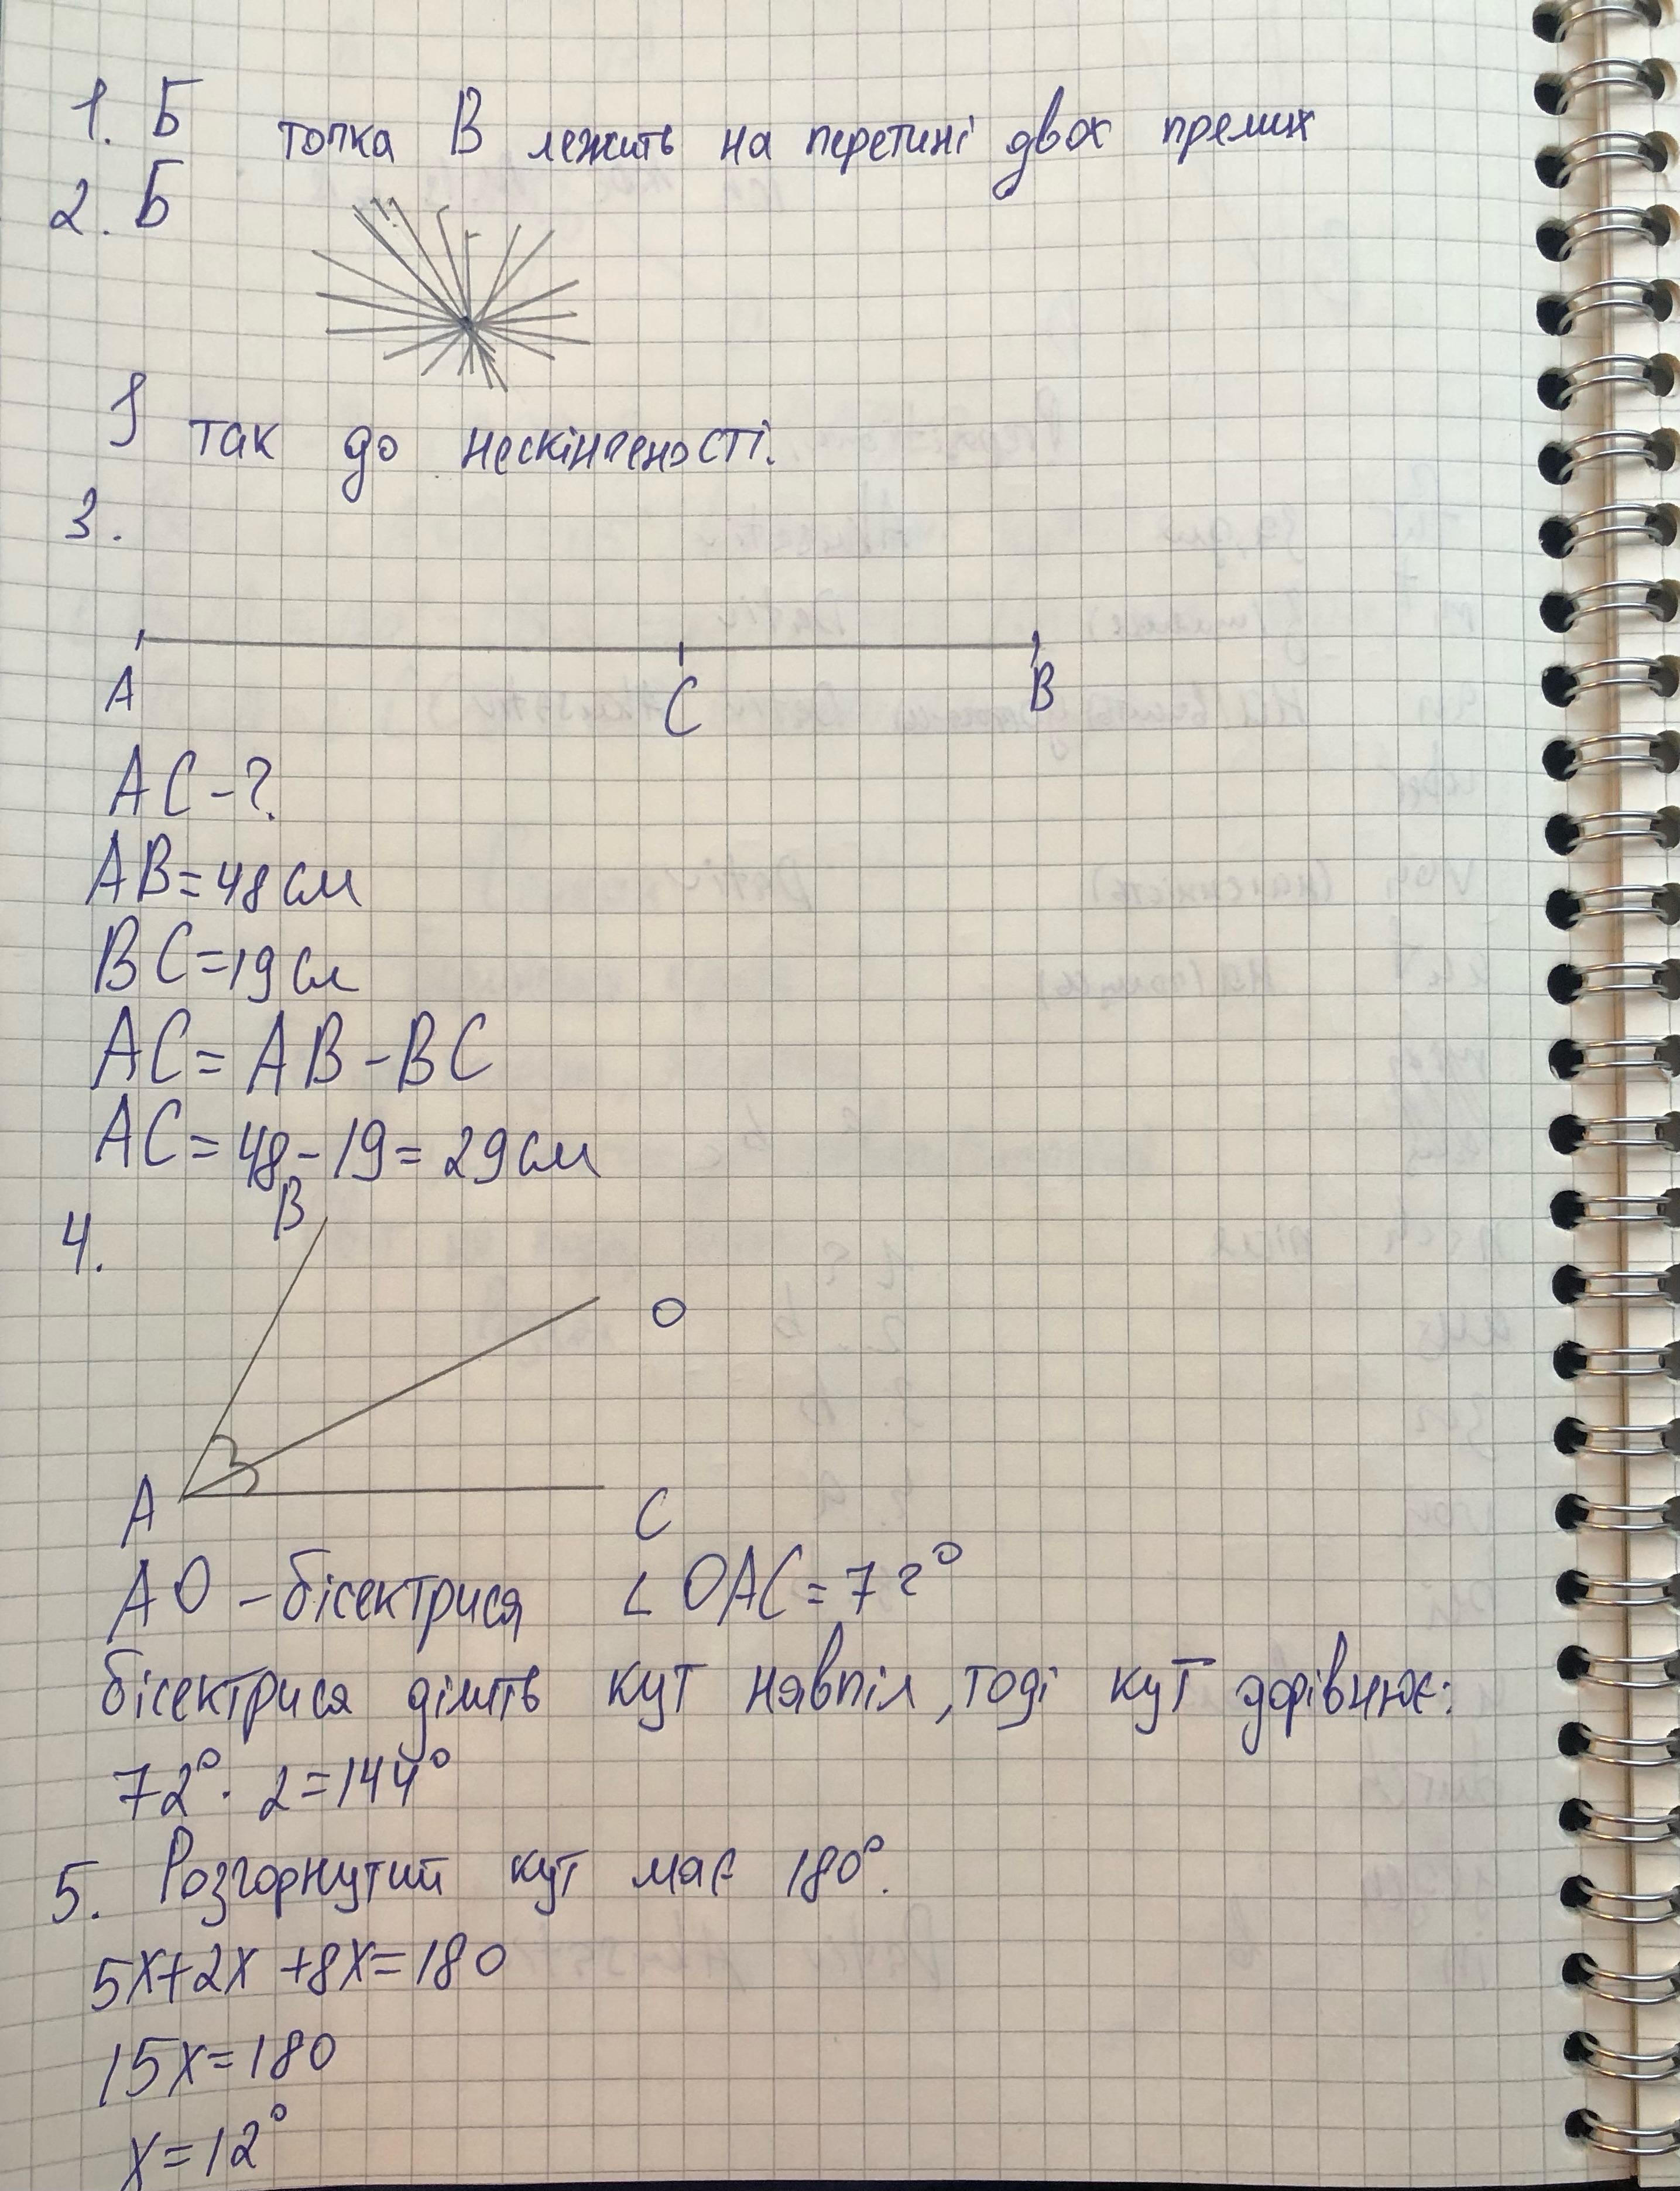 1. Б точка В лежить на перетині двох прямих
2. Б
І так до нескінченості.
3.
А С В
АС-?
АВ=48см
ВС=19см
АС=АВ-ВС
АС=48-19=29см
4.
В
О
А С
АО-бісектриса ∠ОАС=72°
бісектриса ділить кут навпіл, тоді кут дорівнює:
72°·2=144°
5. Розгорнутий кут має 180°.
5х+2х+8х=180
15х=180
х=12°